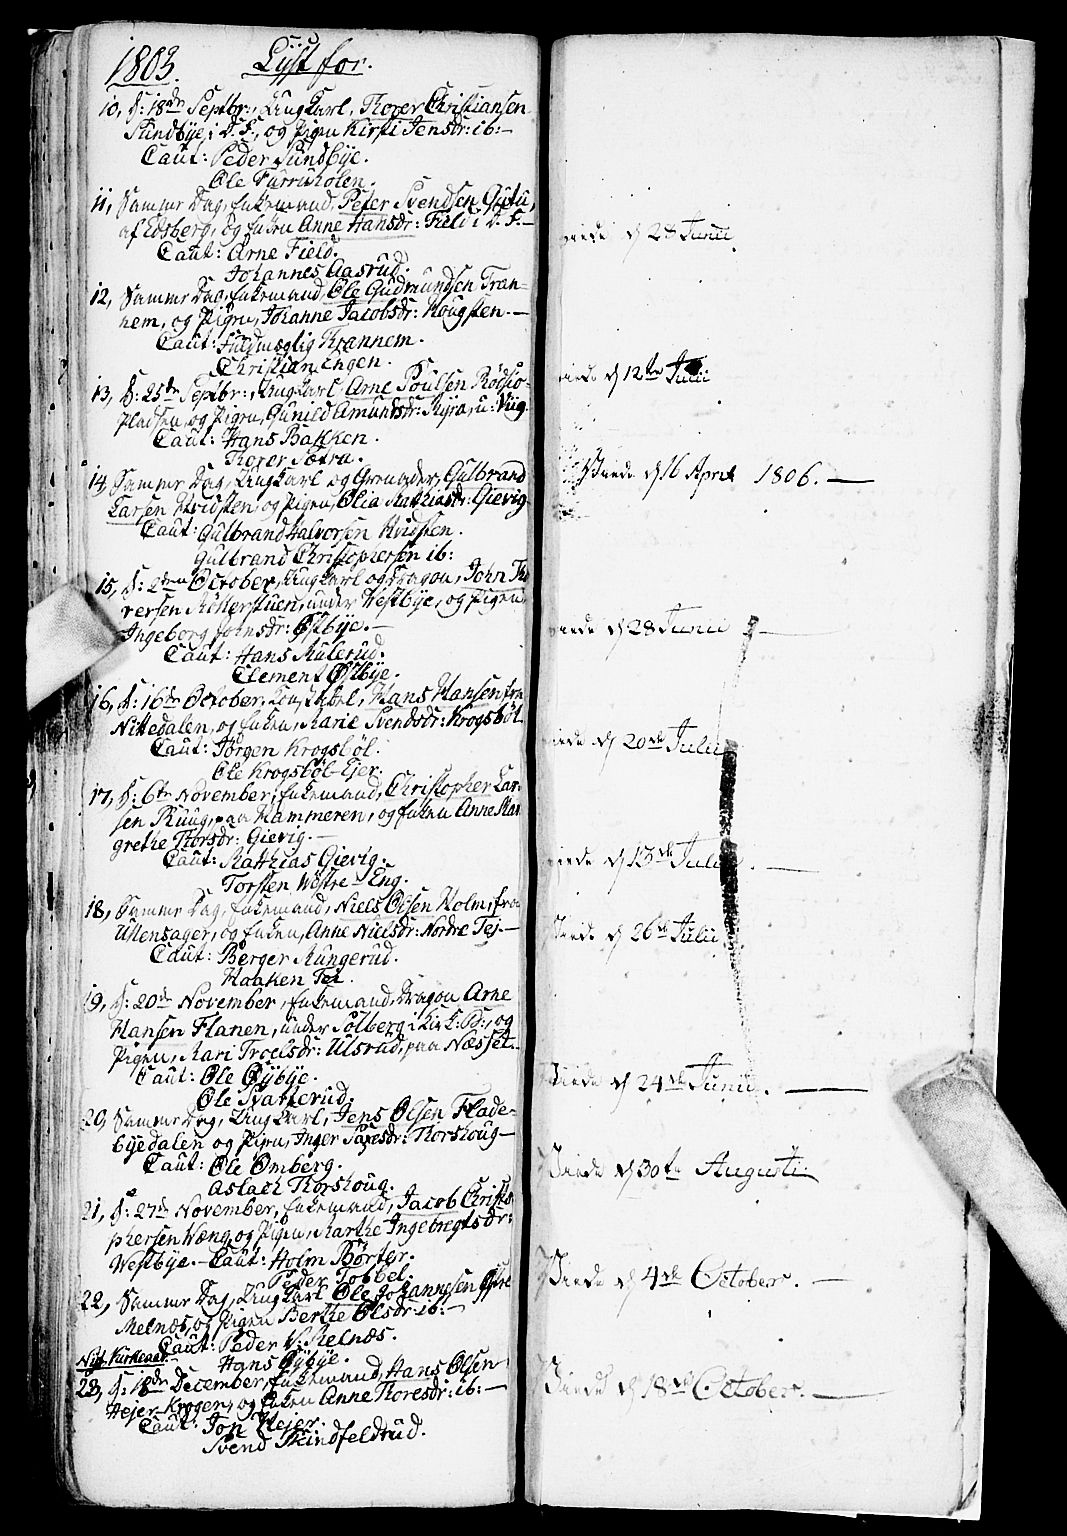 1803.
Lyst for.
10, d: 18de Septbr:, Ung Karl, Thorer Christiansen
Sundbye i D. F., og Pigen Kirsti Jensdr: ib: —
Caut: Peder Sundbye.
Ole Furruholen.
11, Samme Dag, Enkemand, Peter Svendsen
af Edsberg, og Enken Anne Hansdr: Field i D. F. —
Caut: Arne Field.
Johannes Aasrud.
12, Samme Dag, Enkemand, Ole Gudmundsen Tran-
nem, og Pigen, Johanne Jacobsdr: Hougsten. —
Caut: Trannem.
Christian Engen.
13, d: 25de Septbr:, Ung Karl Arne Poulsen
Pladsen, og Pigen, Gunild Amundsdr: u: Viig.
Caut: Hans Bakken.
Thorer Sætra.
14, Samme Dag, Ung Karl og Grenader, Gulbrand
Larsen Hvidsten, og Pigen, Olia Mathiasdr: Gievig
Caut: Gulbrand Halvorsen Hvidsten.
Gulbrand Christophersen ib:
15, d: 2den October, Ung Karl og Dragon, John Tho
rersen under Westbye, og Pigen,
Ingeborg Johnsdr: Østbye. —
Caut: Hans Mulerud.
Clement Østbye.
16, d: 16de October, Hans Hansen fra
Nittedalen, og Enken, Marie Svendsdr: Krogsbøl
Caut: Jörgen Krogsbøl.
Ole Krogsbøl-Ejer.
17, d: 6te November, Enkemand, Christopher Lar-
sen Ruug, paa Hammeren, og Enken Anne Mar
grethe Thorsdr: Gievig. —
Caut: Mathias Gievig.
Torsten Westre-Eng.
18, Samme Dag, Enkemand, Niels Olsen Holm, fra
Ullensager, og Enken, Anne Nielsdr: Nordre Tej. —
Caut: Berger Mungerud.
Haaken Tej.
19, d: 20de November, Enkemand, Dragon Arne
Hansen Flanen, under Solberg i Kirk: B:, og
Pigen, Kari Troelsdr: Ulsrud, paa Næsset. —
Caut: Ole Øybye.
Ole Svarterud.
20, Samme Dag, Ung Karl, Jens Olsen Flade-
byedalen og Pigen, Inger Thorshoug —
Caut: Ole Omberg.
Aslach Thorshoug.
21, d: 27de November, Enkemand, Jacob Christo
phersen Wæng og Pigen, Marthe Ingebregtsdr:
Westbye. — Caut: Holm Børter.
Peder Tobbel.
22, Samme Dag, Ung Karl Ole Johannesen Østre
Melnæs, og Pigen Berthe Olsdr: ib: —
Caut: Peder V: Melnæs.
Hans Øybye.
Nyt Kirkeaar.
23, d: 18de December, Enkemand, Hans Olsen
Hejer-Krogen, og Enken Anne Thoresdr: ib: —
Caut: Jon Hejer.
Svend Skindfeldrud.
viede d 28 Junii.
viede d 12te Julii
Viede d 16 April 1806. —
viede d 28 Junii —
viede d 20de Julii
viede d 13de Julii. —
Viede d 26de Julii
Viede d 24de Junii. —
Viede d 30te Augusti.
Viede d 4de October. —
Viede d 18de October. —